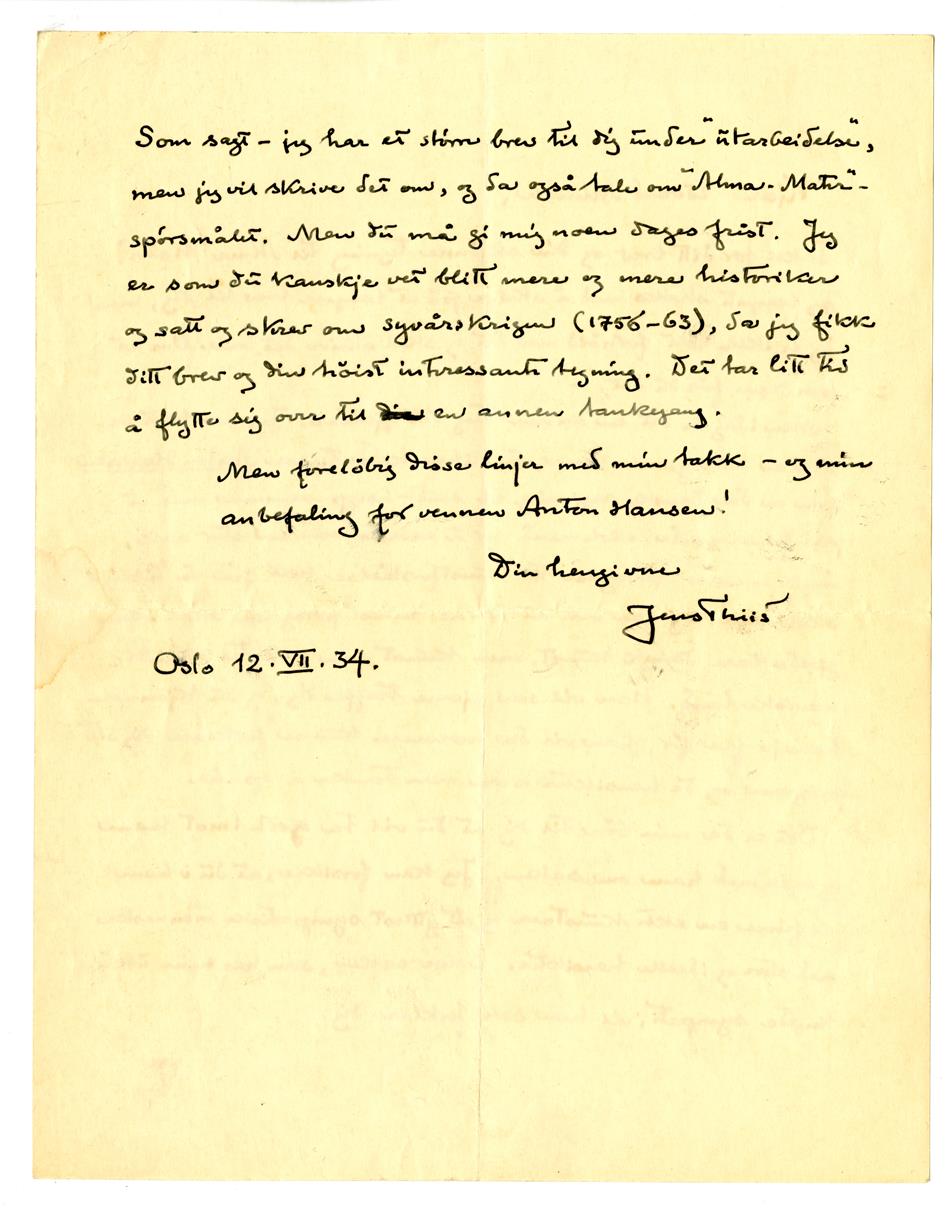 Som sagt – jeg har et større brev til dig under "utarbeidelse",
men jeg vil skrive det om, og da også tale om "Alma-Mater"-
spørsmålet. Men du må gi mig noen dages frist. Jeg
er som du kanskje vet blitt mere og mere historiker
og satt og skrev om syvårskrigen (1756–63), da jeg fikk
ditt brev og din høist interessante tegning. Det tar litt tid
å flytte sig over til en annen tankegang.
Men foreløbig disse linjer med min takk – og min
anbefaling for vennen Anton Hansen!
Din hengivne
Jens Thiis
Oslo 12.VII.34.